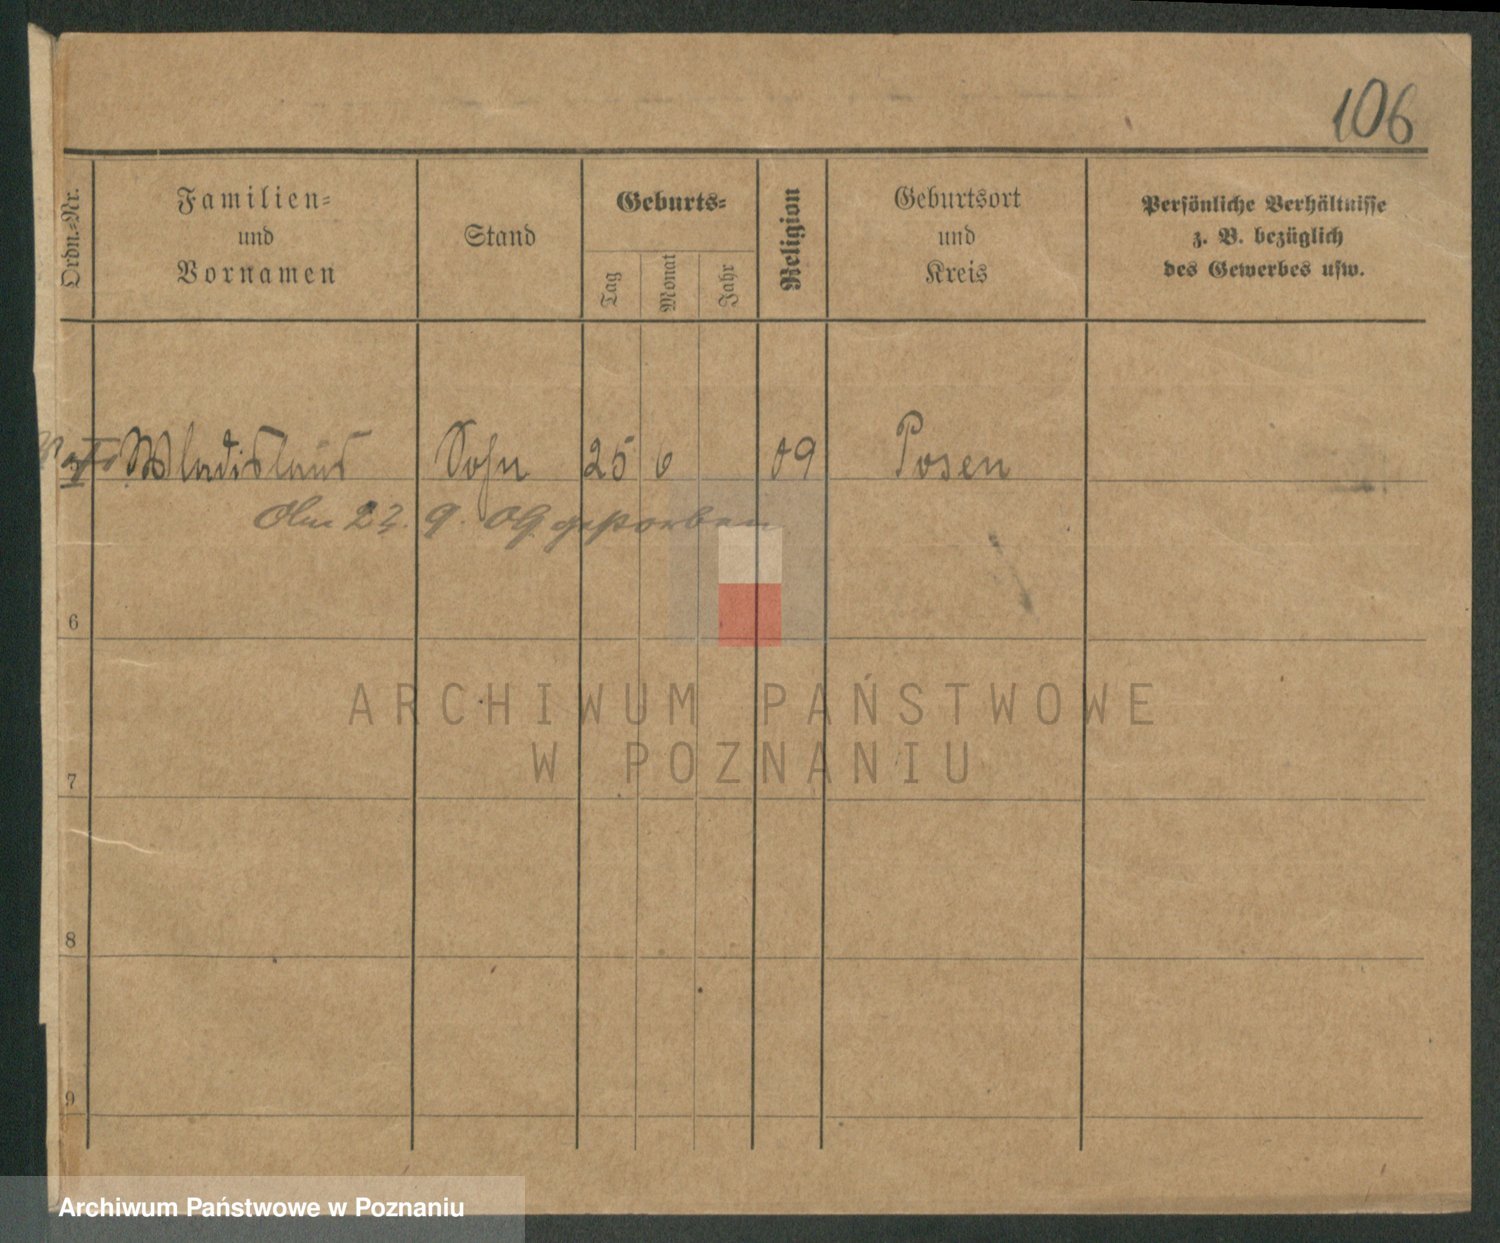 106
Ordn.-Nr.
Familien-
und
Vornamen
Stand
Geburts-
Tag
Monat
Jahr
Religion
Geburtsort
und
Kreis
Persönliche Verhältnisse
z. B. bezüglich
des Gewerbes usw.
Wladislaus Sohn 25 6 09 Posen
Am 23. 9. 09 gestorben
6
ARCHIWUM PAŃSTWOWE
W POZNANIU
7
8
9
Archiwum Państwowe w Poznaniu